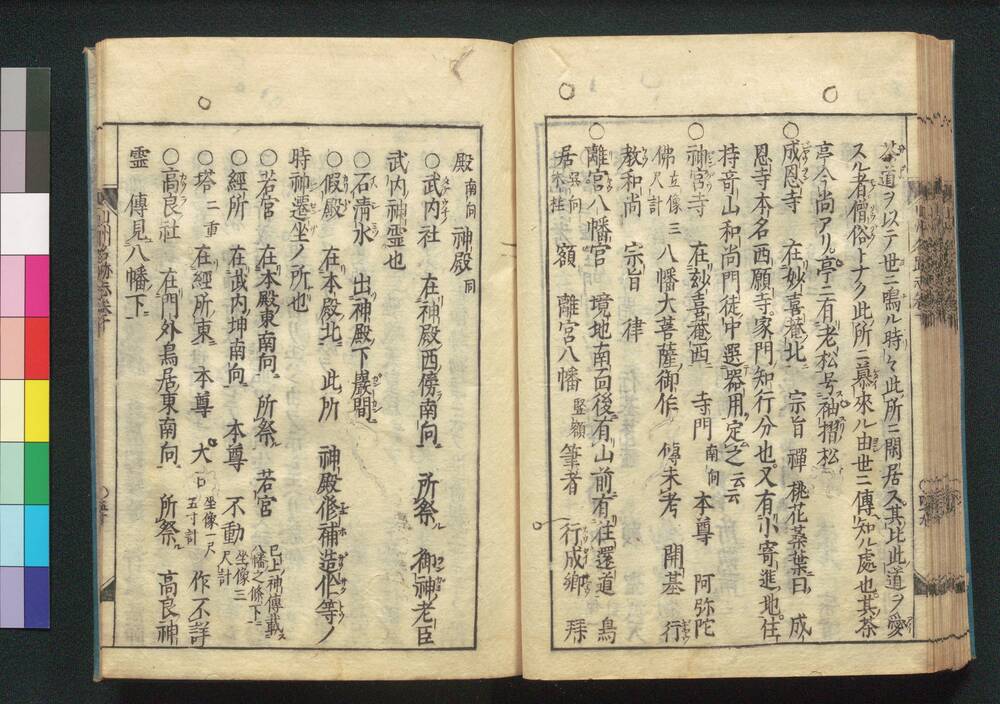 茶道ヲ以テ世ニ鳴ル時々此所ニ閑居ス其比此道ヲ愛
スル者僧俗トナク此所ニ慕來ル由世ニ傳知ル處也其茶
亭今尚アリ亭ニ有老松号袖摺松
〇成恩寺 在妙喜菴北 宗旨禅 桃花蘂葉曰 成
恩寺本名西願寺家門知行分也又有小寄進地住
持竒山和尚門徒中選器用定之云云
〇神宮寺 在玅喜菴西 寺門南向 本尊 阿弥陀
佛立像三尺計 八幡大菩薩御作 傳未考 開基 行
教和尚 宗旨 律
〇離宮八幡宮 境地南面後有山前有往還道 鳥
居巽向木柱 額 離宮八幡竪額 筆者 行成卿 拜
殿南向 神殿同
〇武内社 在神殿西傍南向 所祭 御神老臣
武内神霊也
〇石清水 出神殿下巖間
〇假殿 在本殿北 此所 神殿修補造作等ノ
時神遷坐ノ所也
〇若宮 在本殿東南向 所祭 若宮 已上神傳載八幡之條下
〇經所 在武内坤南向 本尊 不動坐像三尺計
〇塔二重 在經所東 本尊 大日坐像一尺五寸計 作不詳
〇高良社 在門外鳥居東南向 所祭 高良神
霊 傳見八幡下